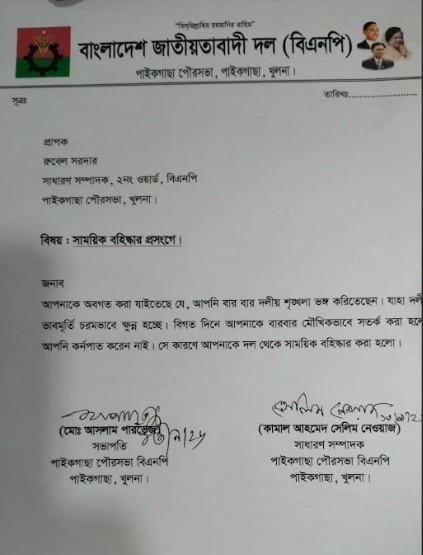 "বিসমিল্লাহির রাহমানির রাহিম"
বাংলাদেশ জাতীয়তাবাদী দল (বিএনপি)
পাইকগাছা পৌরসভা, পাইকগাছা, খুলনা।
সূত্রঃ
তারিখঃ
প্রাপক
রুবেল সরদার
সাধারণ সম্পাদক, ২নং ওয়ার্ড, বিএনপি
পাইকগাছা পৌরসভা, খুলনা।
বিষয় : সাময়িক বহিষ্কার প্রসংগে।
জনাব
আপনাকে অবগত করা যাইতেছে যে, আপনি বার বার দলীয় শৃঙ্খলা ভঙ্গ করিতেছেন। যাহা
ভাবমূর্তি চরমভাবে ক্ষুন্ন হচ্ছে। বিগত দিনে আপনাকে বারবার মৌখিকভাবে সতর্ক করা
আপনি কর্নপাত করেন নাই। সে কারণে আপনাকে দল থেকে সাময়িক বহিষ্কার করা হলো।
(মোঃ আসলাম পারভেজ)
সভাপতি
পাইকগাছা পৌরসভা বিএনপি
পাইকগাছা, খুলনা।
সেলিম নেওয়াজ
(কামাল আহমেদ সেলিম নেওয়াজ)
সাধারণ সম্পাদক
পাইকগাছা পৌরসভা বিএনপি
পাইকগাছা, খুলনা।